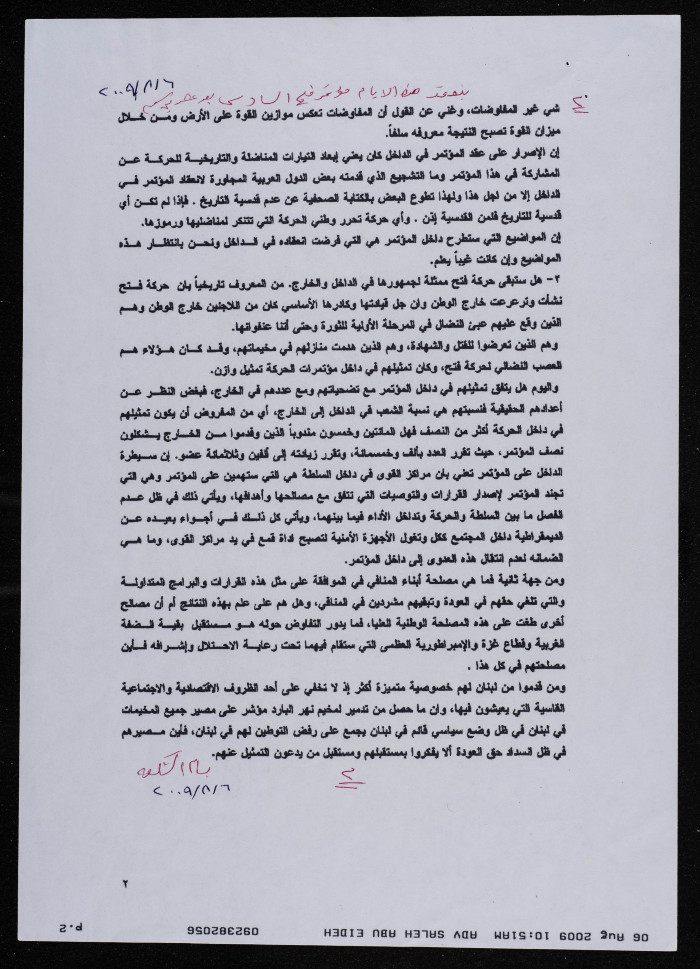 ٢
بنعقد هذه الايام مؤتمر فتح السادس بعد عشرين ٢٠٠٩/٨/٦
شي غير المفاوضات، وغني عن القول أن المفاوضات تعكس موازين القوة على الأرض ومن خلال
ميزان القوة تصبح النتيجة معروفه سلفاً.
إن الإصرار على عقد المؤتمر في الداخل كان يعني إبعاد التيارات المناضلة والتاريخية للحركة عن
المشاركة في هذا المؤتمر وما التشجيع الذي قدمته بعض الدول العربية المجاورة لانعقاد المؤتمر في
الداخل إلا من لجل هذا ولهذا تطوع البعض بالكتابة الصحفية عن عدم قدسية التاريخ . فإذا لم تكن أي
قدسية للتاريخ فلمن القدسية إذن . وأي حركة تحرر وطني الحركة التي تتنكر لمناضليها ورموزها.
إن المواضيع التي ستطرح داخل المؤتمر هي التي فرضت انعقاده في الداخل ونحن بانتظار هذه
المواضيع وإن كانت غيباً يعلم.
٣- هل ستبقى حركة فتح ممثلة لجمهورها في الداخل والخارج. من المعروف تاريخياً بان حركة فتح
نشأت وترعرعت خارج الوطن وان جل قيادتها وكادرها الأساسي كان من اللاجئين خارج الوطن وهم
الذين وقع عليهم عبئ النضال في المرحلة الأولية للثورة وحتى أثنا عنفوانها.
وهم الذين تعرضوا للقتل والشهادة، وهم الذين هدمت منازلهم في مخيماتهم، وقد كان هؤلاء هم
العصب النضالي لحركة فتح، وكان تمثيلهم في داخل مؤتمرات الحركة تمثيل وازن.
واليوم هل يتفق تمثيلهم في داخل المؤتمر مع تضحياتهم ومع عددهم في الخارج، فبغض النظر عن
أعدادهم الحقيقية فنسبتهم هي نسبة الشعب في الداخل إلى الخارج، أي من المفروض أن يكون تمثيلهم
في داخل الحركة أكثر من النصف فهل المائتين وخمسون مندوباً الذين وفدموا من الخارج يشكلون
نصف المؤتمر، حيث تقرر العدد بألف وخمسمائة، وتقرر زيادته إلى ألفين وثلاثمائة عضو. إن سيطرة
الداخل على المؤتمر تعني بان مراكز القوى في داخل السلطة هي التي ستهمين على المؤتمر وهي التي
تجند المؤتمر لإصدار القرارات والتوصيات التي تتفق مع مصالحها وأهدافها، ويأتي ذلك في ظل عدم
الفصل ما بين السلطة والحركة وتداخل الأداء فيما بينهما، ويأتي كل ذلك في أجواء بعيده عن
الديمقراطية داخل المجتمع ككل وتغول الأجهزة الأمنية لتصبح اداة قمع في يد مراكز القوى، وما هي
الضمانه لعدم انتقال هذه العدوى إلى داخل المؤتمر.
ومن جهة ثانية فما هي مصلحة أبناء المنافي في الموافقة على مثل هذه القرارات والبرامج المتداولة
والتي تلغي حقهم في العودة وتبقيهم مشردين في المنافي، وهل هم على علم بهذه النتائج أم أن مصالح
أخرى طغت على هذه المصلحة الوطنية العليا، فما يدور التفاوض حوله هو مستقبل بقية الضفة
الغربية وقطاع غزة والإمبراطورية العظمى التي ستقام فيهما تحت رعاية الاحتلال وإشرافه فأين
مصلحتهم في كل هذا .
ومن قدموا من لبنان لهم خصوصية متميزة أكثر إذ لا تخفي على أحد الظروف الاقتصادية والاجتماعية
القاسية التي يعيشون فيها، وان ما حصل من تدمير لمخيم نهر البارد مؤشر على مصير جميع المخيمات
في لبنان في ظل وضع سياسي قائم في لبنان يجمع على رفض التوطين لهم في لبنان، فأين مصيرهم
في ظل انسداد حق العودة ألا يفكروا بمستقبلهم ومستقبل من يدعون التمثيل عنهم.
٢٠٠٩/٨/٦
٢
06 Aug 2009 10:51AM ADV SALEH ABU EIDEH 092382056 P.2